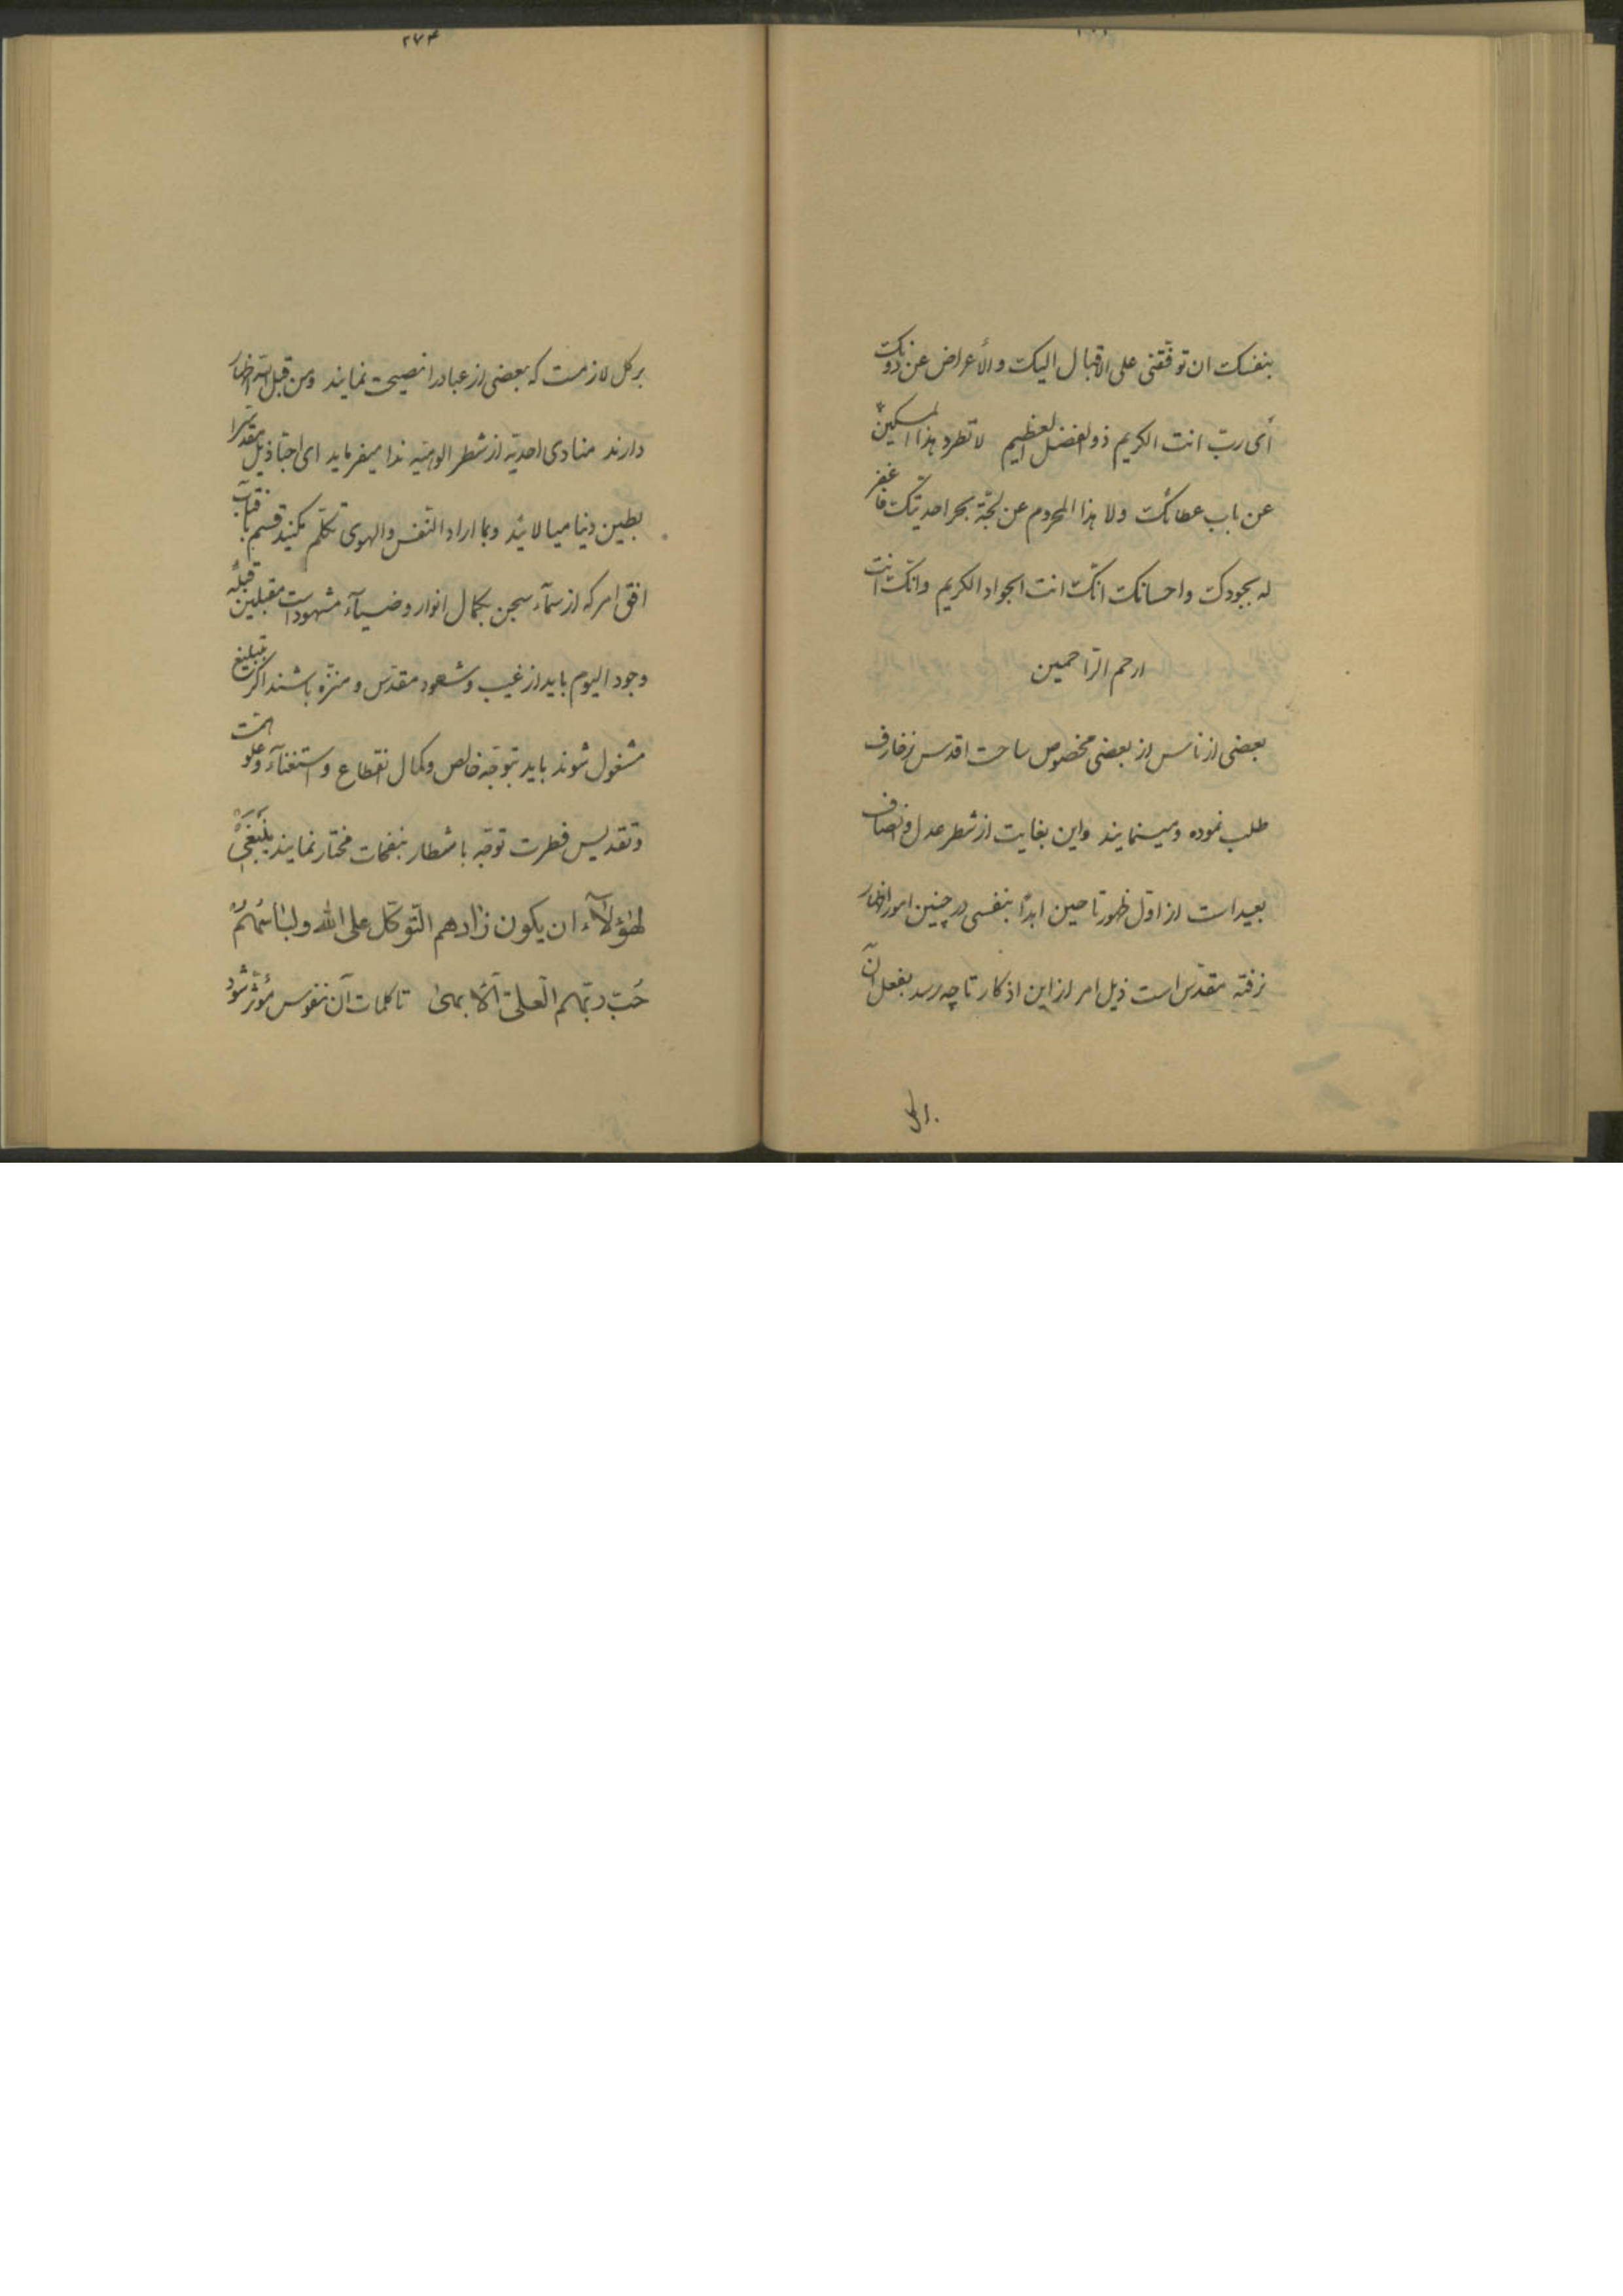 بنفسک ان توفّقنی علی الاقبال الیک والأعراض عن دونک
أی ربّ انت الکریم ذو الفضل العظیم لا تطرد هذا المسکین
عن باب عطائک ولا هذا المحروم عن لجّة بحر احدیّتک فاغفر
له بجودک و احسانک انّک انت الجواد الکریم وانّک انت
ارحم الرّاحمین
بعضی از ناس از بعضی مخصوص ساحت اقدس زخارف
طلب نموده و مینمایند و این بغایت از شطر عدل و انصاف
بعید است از اوّل ظهور تا حین ابداً بنفسی در چنین امور اظهار
نرفته مقدّس است ذیل امر از این اذکار تا چه رسد بفعل آن
بر
۲۷۴
بر کل لازمست که بعضی از عباد را نصیحت نمایند و من قبل الله اظهار
دارند منادی احدیّه از شطر الوهیّه ندا میفرماید ای احبّا ذیل مقدّس را
بطین دنیا میالائید و بما اراد النّفس والهوی تکلّم مکنید قسم بآفتاب
افق امر که از سمآء سجن بکمال انوار و ضیآء مشهود است مقبلین قبلهٔ
وجود الیوم باید از غیب و شهود مقدّس و منزّه باشند اگر بتبلیغ
مشغول شوند باید بتوجّه خالص و کمال انقطاع و استغنآء و علوّ همّت
و تقدیس فطرت توجّه باشطار بنفحات مختار نمایند ینبغی
لهؤلآء ان یکون زادهم التّوکّل علی الله و لباسهم
حُبّ ربّهم العلیّ الأبهیٰ تا کلمات آن نفوس مؤثّر شود